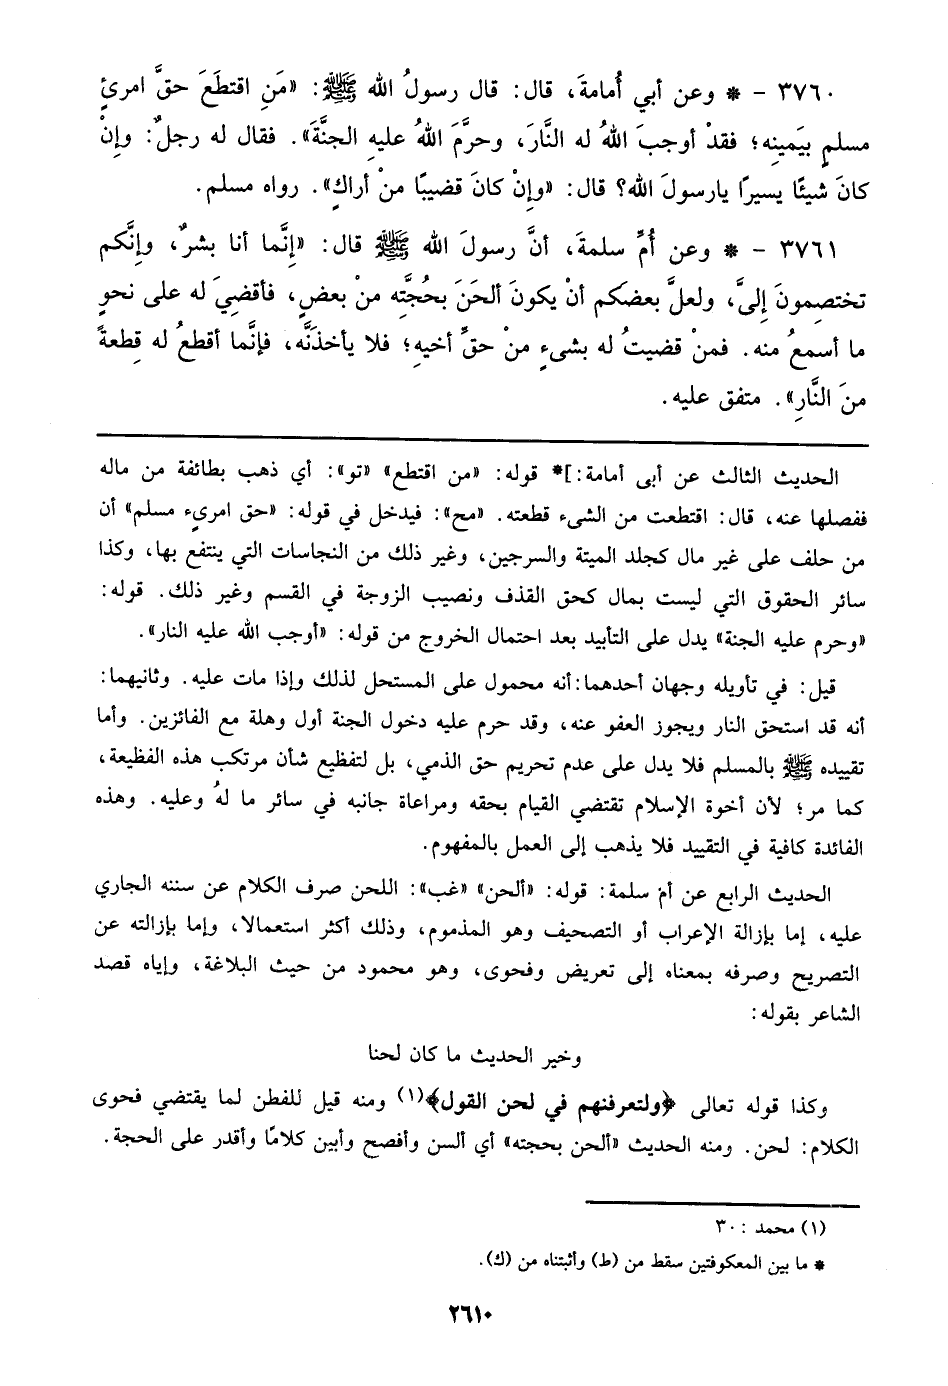 ٣٧٦٠ – * وعن أبي أُمامةَ، قال: قال رسولُ الله ﷺ: «مَنِ اقتطَعَ حقَّ امرئٍ
مسلمٍ بيَمينِه؛ فقدْ أوجبَ اللهُ له النَّارَ، وحرَّمَ اللهُ عليهِ الجنَّةَ». فقال له رجلٌ: وإنْ
كانَ شيئًا يسيرًا يارسولَ الله؟ قال: «وإنْ كانَ قضيبًا منْ أراكٍ». رواه مسلم.
٣٧٦١ – * وعن أُمِّ سلمةَ، أنَّ رسولَ الله ﷺ قال: «إنَّما أنا بشرٌ، وإنَّكم
تختصِمونَ إليَّ، ولعلَّ بعضَكم أنْ يكونَ ألحَنَ بحُجَّتِه منْ بعضٍ، فأقضيَ له على نحوِ
ما أسمعُ منه. فمنْ قضيتُ له بشىءٍ منْ حقِّ أخيهِ؛ فلا يأخذَنَّه، فإنَّما أقطعُ له قِطعةً
منَ النَّارِ». متفق عليه.
الحديث الثالث عن أبى أمامة:]* قوله: «من اقتطع» «تو»: أي ذهب بطائفة من ماله
ففصلها عنه، قال: اقتطعت من الشىء قطعته. «مح»: فيدخل في قوله: «حق امرىء مسلم» أن
من حلف على غير مال كجلد الميتة والسرجين، وغير ذلك من النجاسات التي ينتفع بها، وكذا
سائر الحقوق التي ليست بمال كحق القذف ونصيب الزوجة في القسم وغير ذلك. قوله:
«وحرم عليه الجنة» يدل على التأبيد بعد احتمال الخروج من قوله: «أوجب الله عليه النار».
قيل: في تأويله وجهان أحدهما: أنه محمول على المستحل لذلك وإذا مات عليه. وثانيهما:
أنه قد استحق النار ويجوز العفو عنه، وقد حرم عليه دخول الجنة أول وهلة مع الفائزين. وأما
تقييده ﷺ بالمسلم فلا يدل على عدم تحريم حق الذمي، بل لتفظيع شأن مرتكب هذه الفظيعة،
كما مر؛ لأن أخوة الإسلام تقتضي القيام بحقه ومراعاة جانبه في سائر ما لهُ وعليه. وهذه
الفائدة كافية في التقييد فلا يذهب إلى العمل بالمفهوم.
الحديث الرابع عن أم سلمة: قوله: «ألحن» «غب»: اللحن صرف الكلام عن سننه الجاري
عليه، إما بإزالة الإعراب أو التصحيف وهو المذموم، وذلك أكثر استعمالا، وإما بإزالته عن
التصريح وصرفه بمعناه إلى تعريض وفحوى، وهو محمود من حيث البلاغة، وإياه قصد
الشاعر بقوله:
وخير الحديث ما كان لحنا
وكذا قوله تعالى ﴿ولتعرفنهم في لحن القول﴾(١) ومنه قيل للفطن لما يقتضي فحوى
الكلام: لحن. ومنه الحديث «ألحن بحجته» أي ألسن وأفصح وأبين كلامًا وأقدر على الحجة.
(١) محمد : ٣٠
* ما بين المعكوفتين سقط من (ط) وأثبتناه من (ك).
٢٦١٠